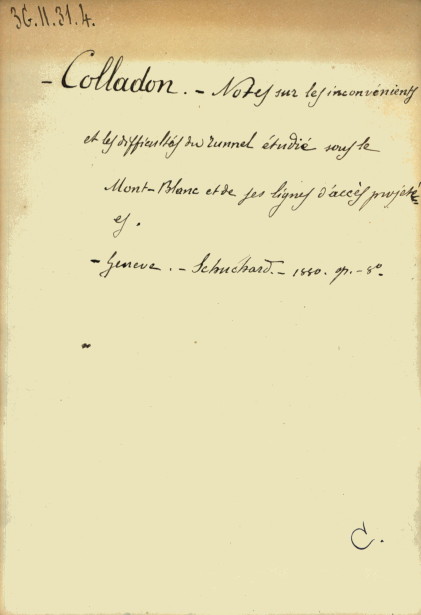 3G.II.31.4.
- Colladon. - Notes sur les inconvénients
et les difficultés du tunnel étudié sous le
Mont-Blanc et de ses lignes d'accès projeté=
es.
- Geneve. - Schuchard. - 1880. op. - 8º.
"
C.